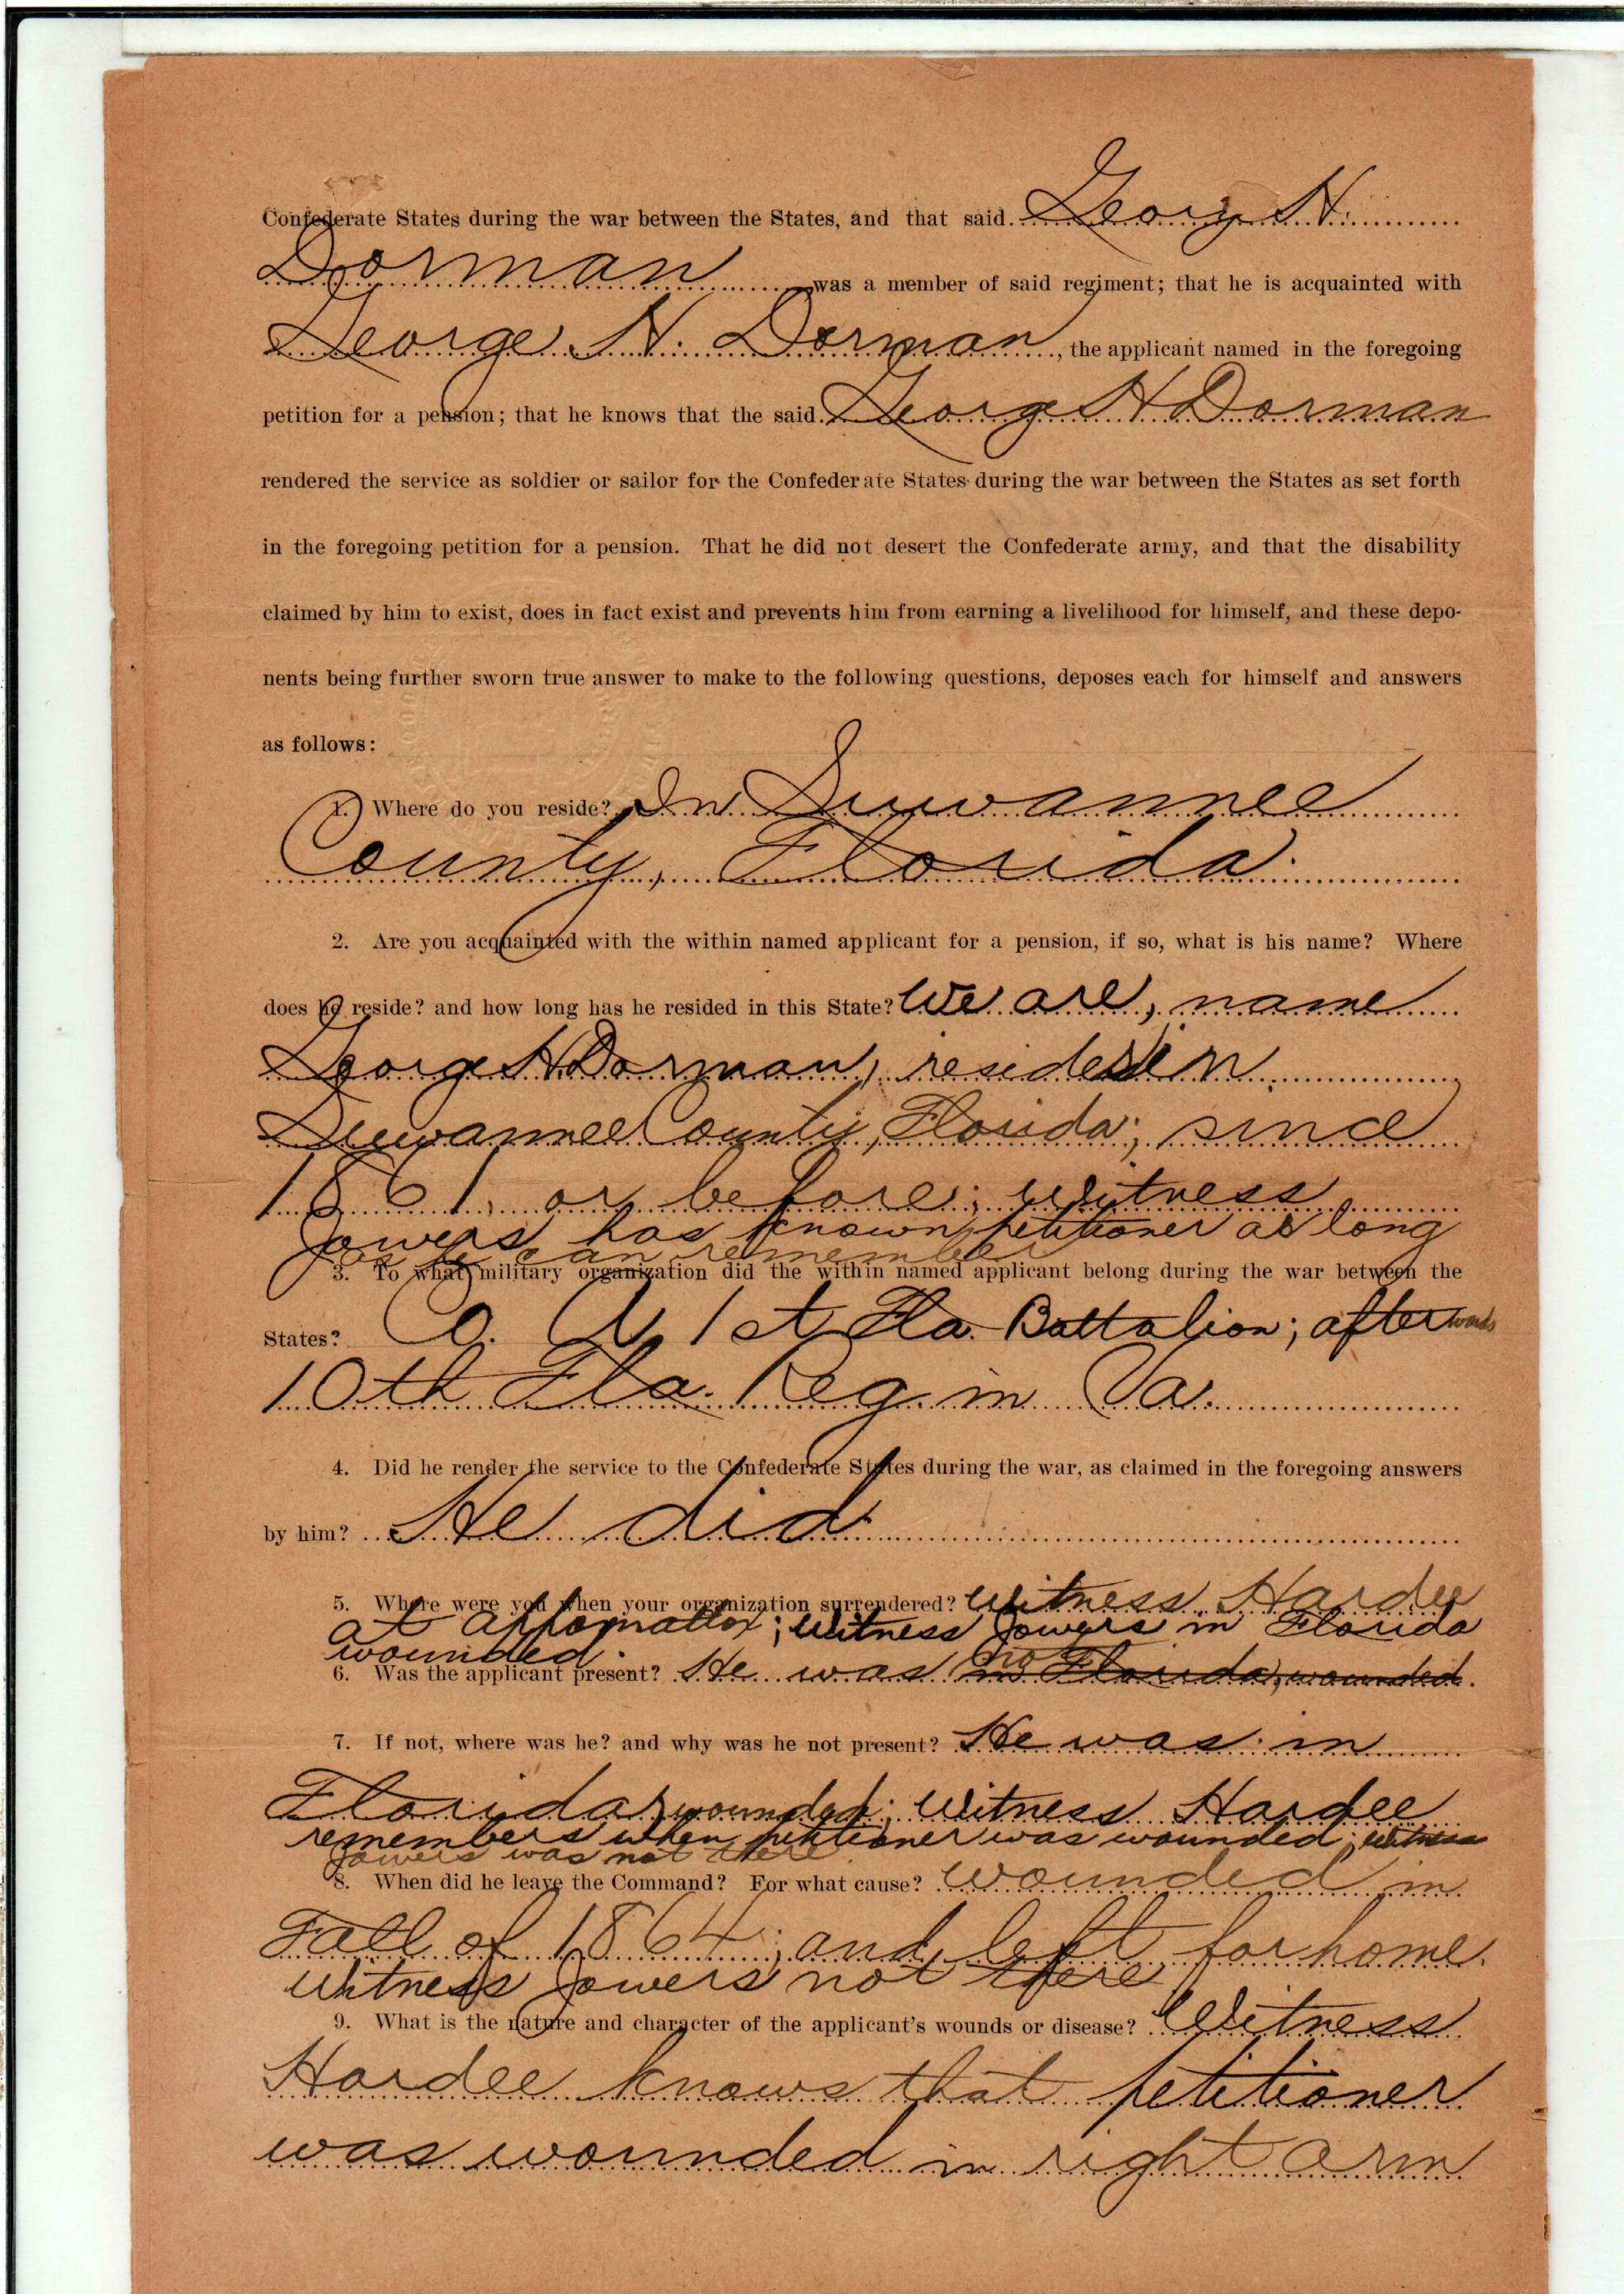 Confederate States during the war between the States, and that said Georg H.
Dorman was a member of said regiment; that he is acquainted with
George H. Dorman, the applicant named in the foregoing
petition for a pension; that he knows that the said Georg H Dorman
rendered the service as soldier or sailor for the Confederate States during the war between the States as set forth
in the foregoing petition for a pension. That he did not desert the Confederate army, and that the disability
claimed by him to exist, does in fact exist and prevents him from earning a livelihood for himself, and these depo-
nents being further sworn true answer to make to the following questions, deposes each for himself and answers
as follows:
1. Where do you reside? In Suwannee
County, Florida.
2. Are you acquainted with the within named applicant for a pension, if so, what is his name? Where
does he reside? and how long has he resided in this State? We are, name
Georg H Dorman, resides in
Suwannee County, Florida; since
1861, or before; witness
Jowers has known petitioner as long
as he can remember
3. To what military organization did the within named applicant belong during the war between the
States? Co. A, 1st Fla. Battalion; afterwards
10th Fla. Reg. in Va.
4. Did he render the service to the Confederate States during the war, as claimed in the foregoing answers
by him? He did
5. Where were you when your organization surrendered? Witness Hardee
at Appomattox; witness Jowers in Florida
wounded.
6. Was the applicant present? He was not in Florida, wounded.
7. If not, where was he? and why was he not present? He was in
Florida, wounded; Witness Hardee
remembers when petitioner was wounded; witness
Jowers was not there.
8. When did he leave the Command? For what cause? wounded in
Fall of 1864; and left for home.
Witness Jowers not there
9. What is the nature and character of the applicant's wounds or disease? Witness
Hardee knows that petitioner
was wounded in right arm